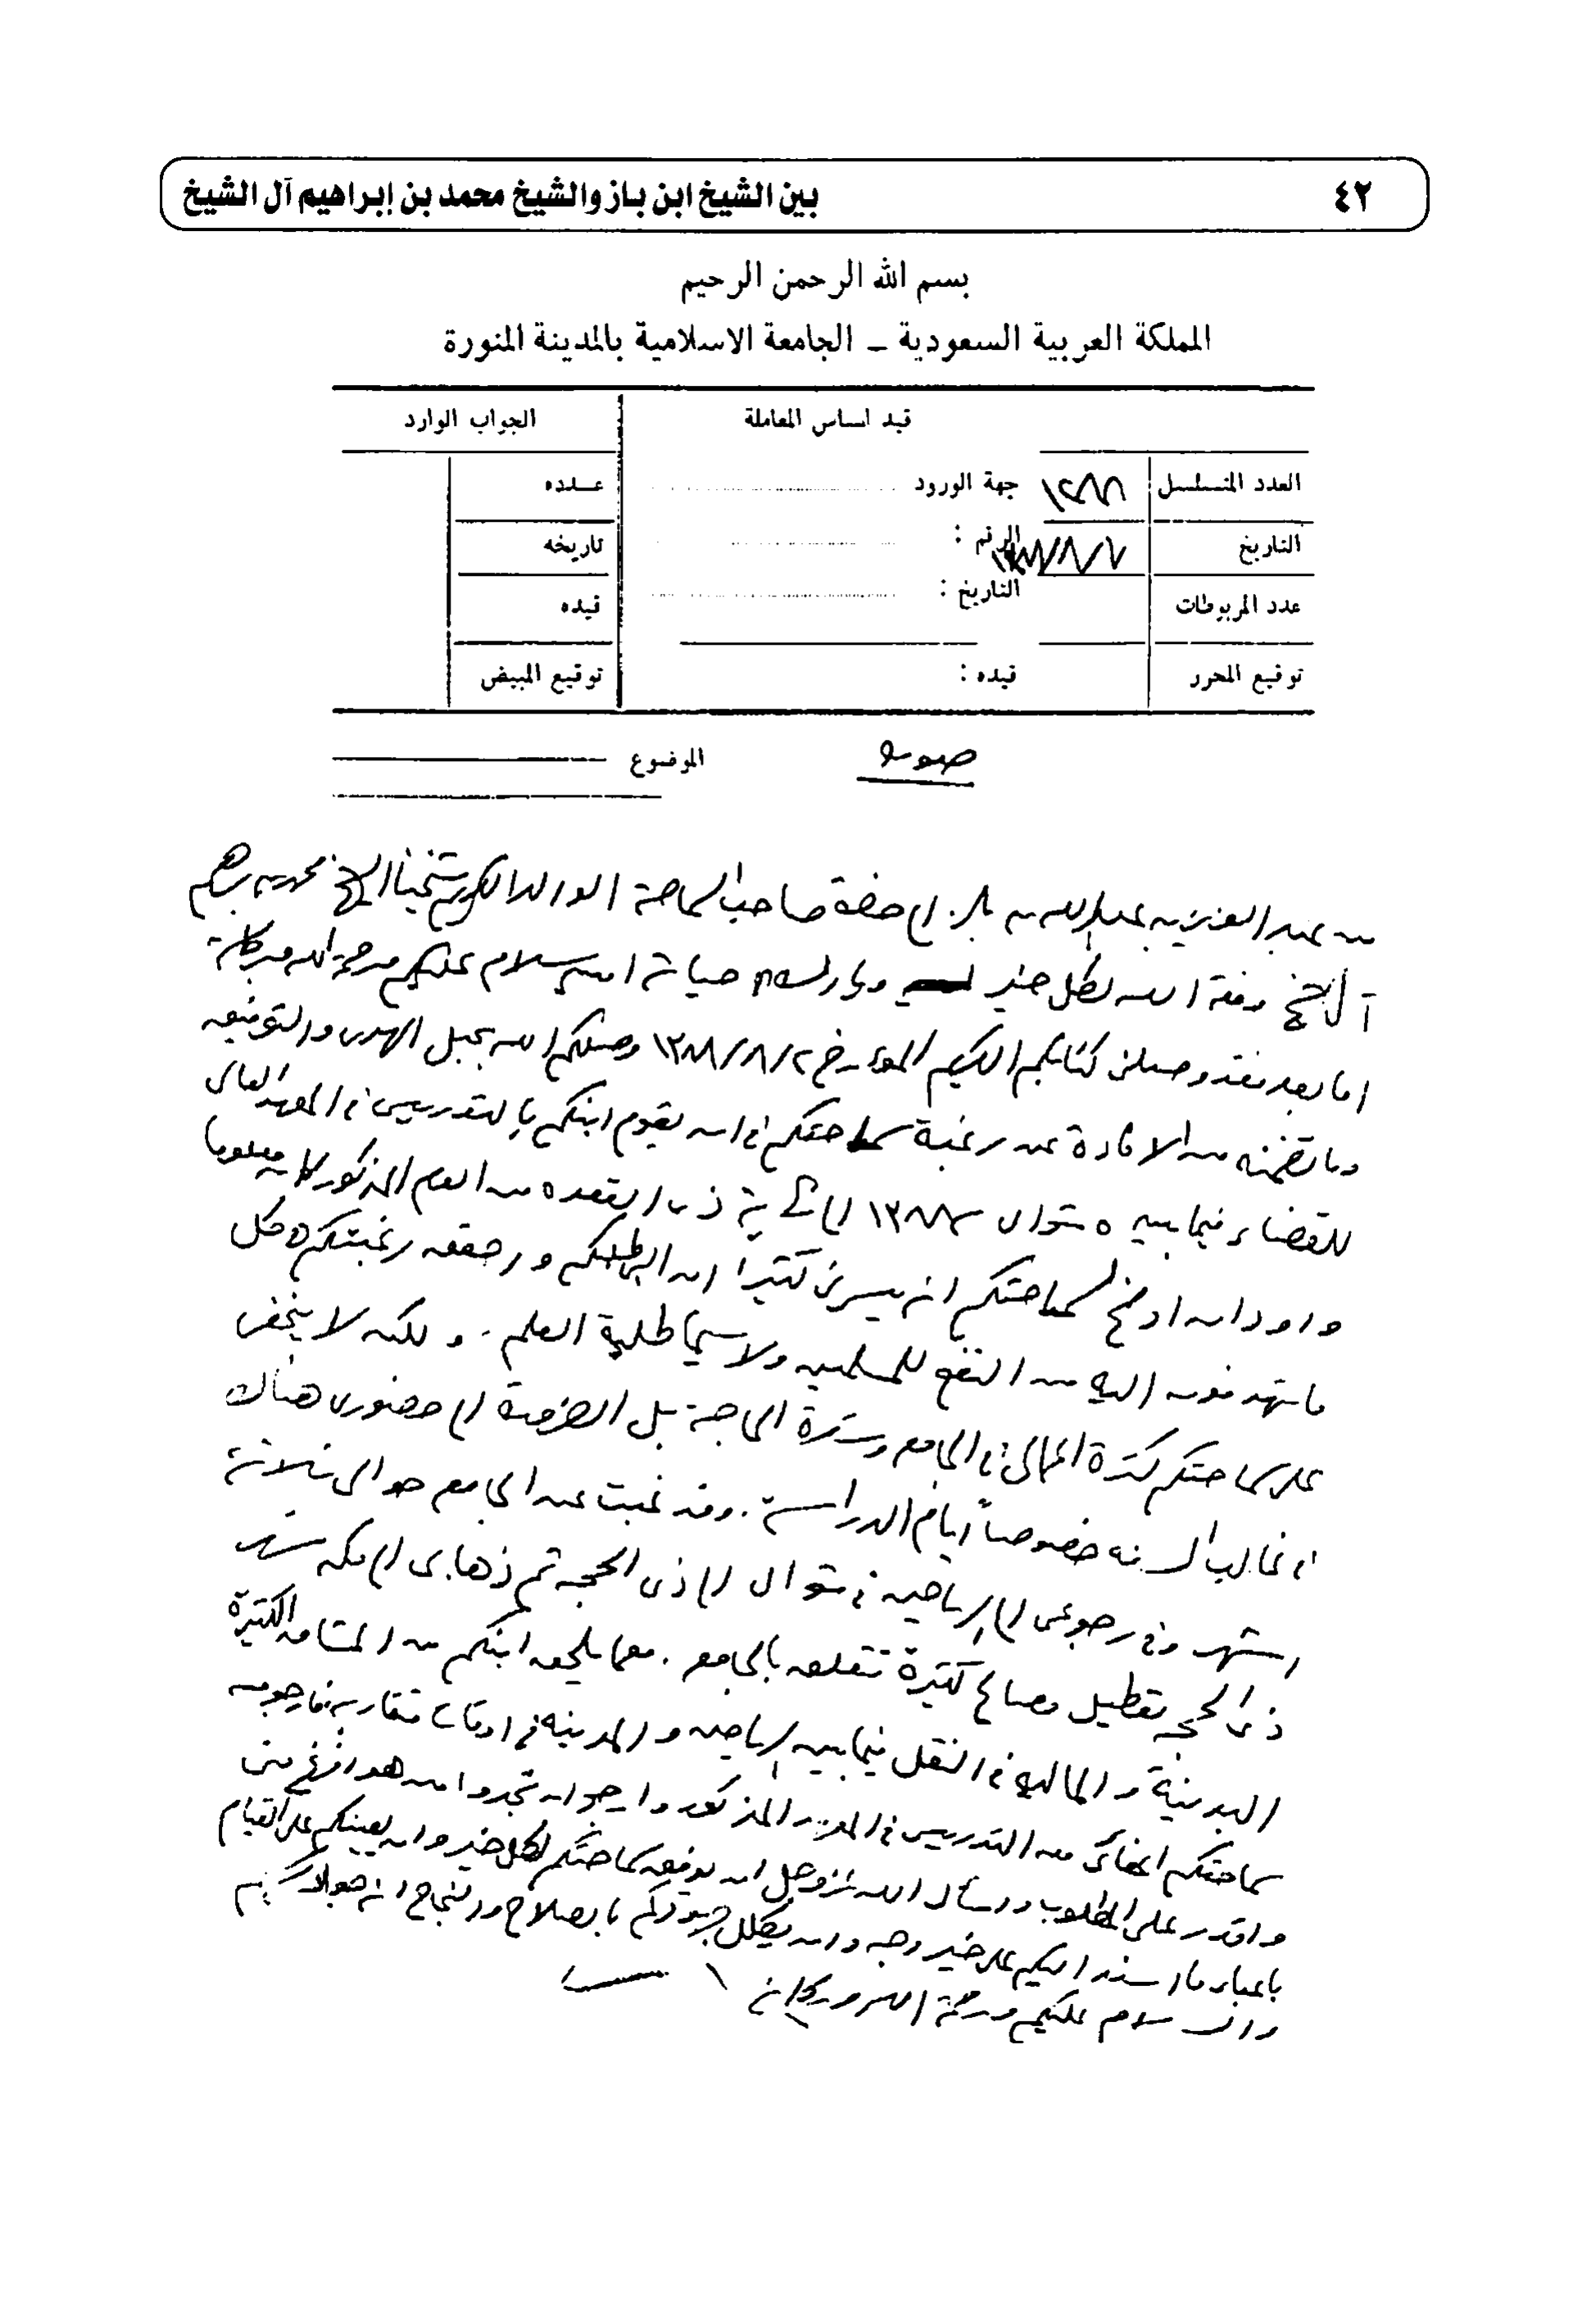 ٤٢
بين الشيخ ابن باز والشيخ محمد بن إبراهيم آل الشيخ
بسم الله الرحمن الرحيم
المملكة العربية السعودية ــ الجامعة الاسلامية بالمدينة المنورة
قيد اساس المعاملة
الجواب الوارد
العدد المتسلسل
جهة الورود
عــدده
التاريخ
الرقم :
تاريخه
عدد المربوطات
التاريخ :
قيده
توقيع المحرر
قيده :
توقيع المبيض
صورة
الموضوع
من عبد العزيز بن عبد الله بن باز الى حضرة صاحب السماحة الوالد الكريم شيخنا الشيخ محمد بن ابراهيم
آل الشيخ وفقه الله لكل خير وبارك في حياته امين سلام عليكم ورحمة الله وبركاته
اما بعد فقد وصلني كتابكم الكريم المؤرخ ١٣٨٨/٨/٢ وصلكم الله بحبل الهدى والتوفيق
وما تضمنه من الافادة عن رغبة سماحتكم في ان يقوم ابنكم بالتدريس في المعهد العالي
للقضاء فيما بين ٥ شوال ١٣٨٨ الى ذي القعده من العام المذكور كان معلوما
واود ان اوضح لسماحتكم انه يسرني كثيرا ان البي طلبكم واحقق رغبتكم في كل
ما تهدفون اليه من النفع للمسلمين ولا سيما طلبة العلم . ولكن لا يخفى
على سماحتكم كثرة المهام في الجامعة وشدة الحاجة بل الضرورة الى حضوري هناك
في غالب السنه خصوصاً ايام الدراسة . وقد غبت عن الجامعة حوالي ثلاثة
اشهر وفي رجوعي الى الرياض في شوال الى ذي الحجه ثم ذهابي الى مكه شهر
ذي الحجه تعطيل مصالح كثيرة تتعلق بالجامعة . مع ما يلحق ابنكم من المشاق الكثيرة
البدنية والمالية في النقل فيما بين الرياض والمدينة في اوقات متقاربة فارجو من
سماحتكم اعفائي من التدريس في المعهد المذكور وارجو ان تجدوا من هو افرغ مني
واقدر على المطلوب واسأل الله عز وجل ان يوفق سماحتكم لكل خير وان يعينكم على القيام
باعباء ما اسند اليكم على خير وجه وان يكلل جهودكم بالصلاح والنجاح انه جواد كريم
والسلام عليكم ورحمة الله وبركاته